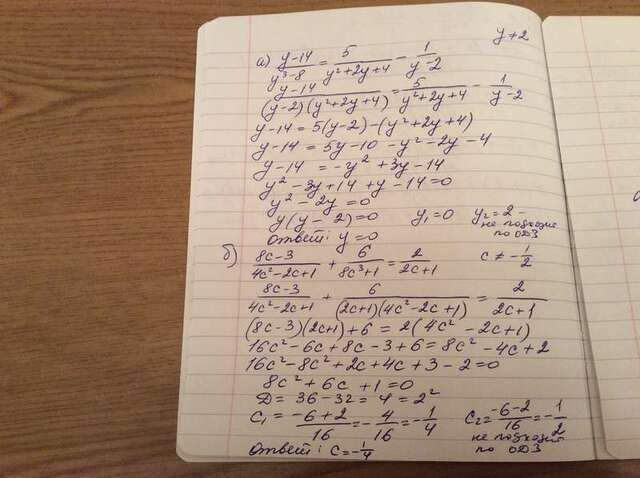 y ≠ 2
а) (y-14)/(y³-8) = 5/(y²+2y+4) - 1/(y-2)
(y-14)/((y-2)(y²+2y+4)) = 5/(y²+2y+4) - 1/(y-2)
y-14 = 5(y-2) - (y²+2y+4)
y-14 = 5y-10 -y²-2y-4
y-14 = -y²+3y-14
y²-3y+14+y-14=0
y²-2y=0
y(y-2)=0 y₁=0 y₂=2 -
не подходит
по ОДЗ
Ответ: y=0
б) (8c-3)/(4c²-2c+1) + 6/(8c³+1) = 2/(2c+1) c ≠ -1/2
(8c-3)/(4c²-2c+1) + 6/((2c+1)(4c²-2c+1)) = 2/(2c+1)
(8c-3)(2c+1)+6 = 2(4c²-2c+1)
16c²-6c+8c-3+6 = 8c²-4c+2
16c²-8c²+2c+4c+3-2=0
8c²+6c+1=0
D = 36-32=4=2²
c₁ = (-6+2)/16 = -4/16 = -1/4 c₂ = (-6-2)/16 = -1/2
не подходит
по ОДЗ
Ответ: c=-1/4